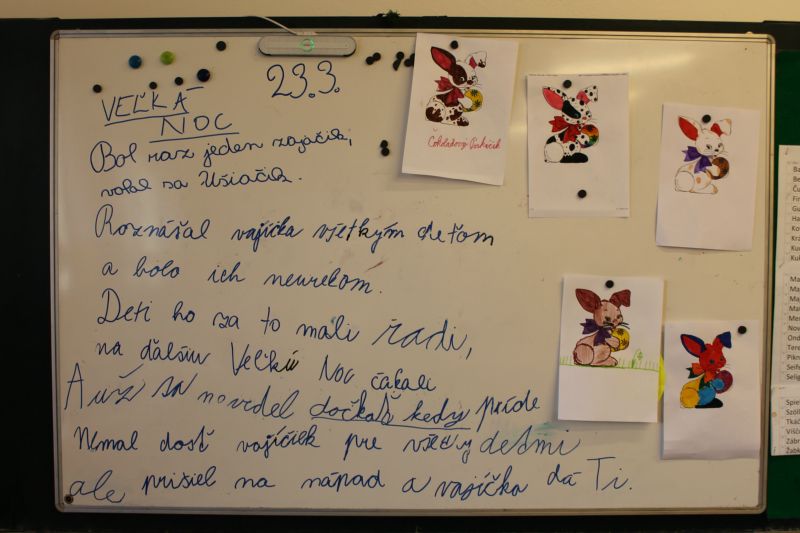 VEĽKÁ
NOC
23.3.
Bol raz jeden zajačik,
volal sa Ušiačik.
Roznášal vajíčka všetkým deťom
a bolo ich neurekom.
Deti ho za to mali řadi,
na ďalšiu Veľkú Noc čakali
A už sa nevedel dočkať kedy príde
Nemal dosť vajíčiek pre všetky deťmi
ale prišiel na nápad a vajíčko dá Ti.
Čokoládový